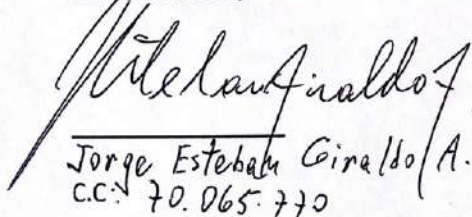 Jorge Esteban Giraldo A.
C.C: 70.065.770